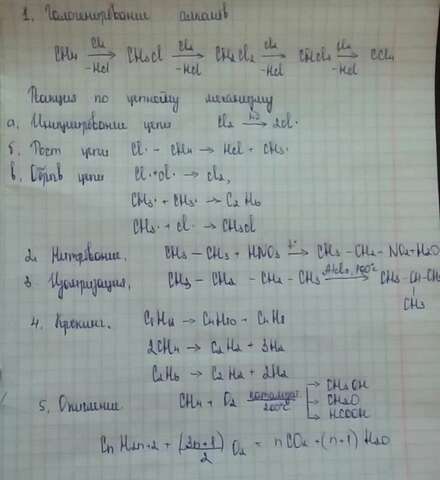 1. Галогенирование алканов
CH4 Cl2 → -HCl CH3Cl Cl2 → -HCl CH2Cl2 Cl2 → -HCl CHCl3 Cl2 → -HCl CCl4
Реакция по цепному механизму
а. Инициирование цепи Cl2 hν → 2Cl·
б. Рост цепи Cl· - CH4 → HCl + CH3·
в. Обрыв цепи Cl·+Cl· → Cl2,
CH3· + CH3· → C2H6
CH3· + Cl· → CH3Cl
2. Нитрование. CH3 – CH3 + HNO3 t° → CH3 – CH2 – NO2 + H2O
3. Изомеризация. CH3 – CH2 – CH2 – CH3 AlCl3, 100°C → CH3-CH-CH3
CH3
4. Крекинг. → C4H10 + C4H8
2CH4 → C2H2 + 3H2
C2H6 → C2H2 + 2H2
5. Окисление. CH4 + O2 катализат. 200°C → CH3OH
CH2O
HCOOH
CnH2n+2 + (3n+1)/2 O2 = nCO2 + (n+1) H2O